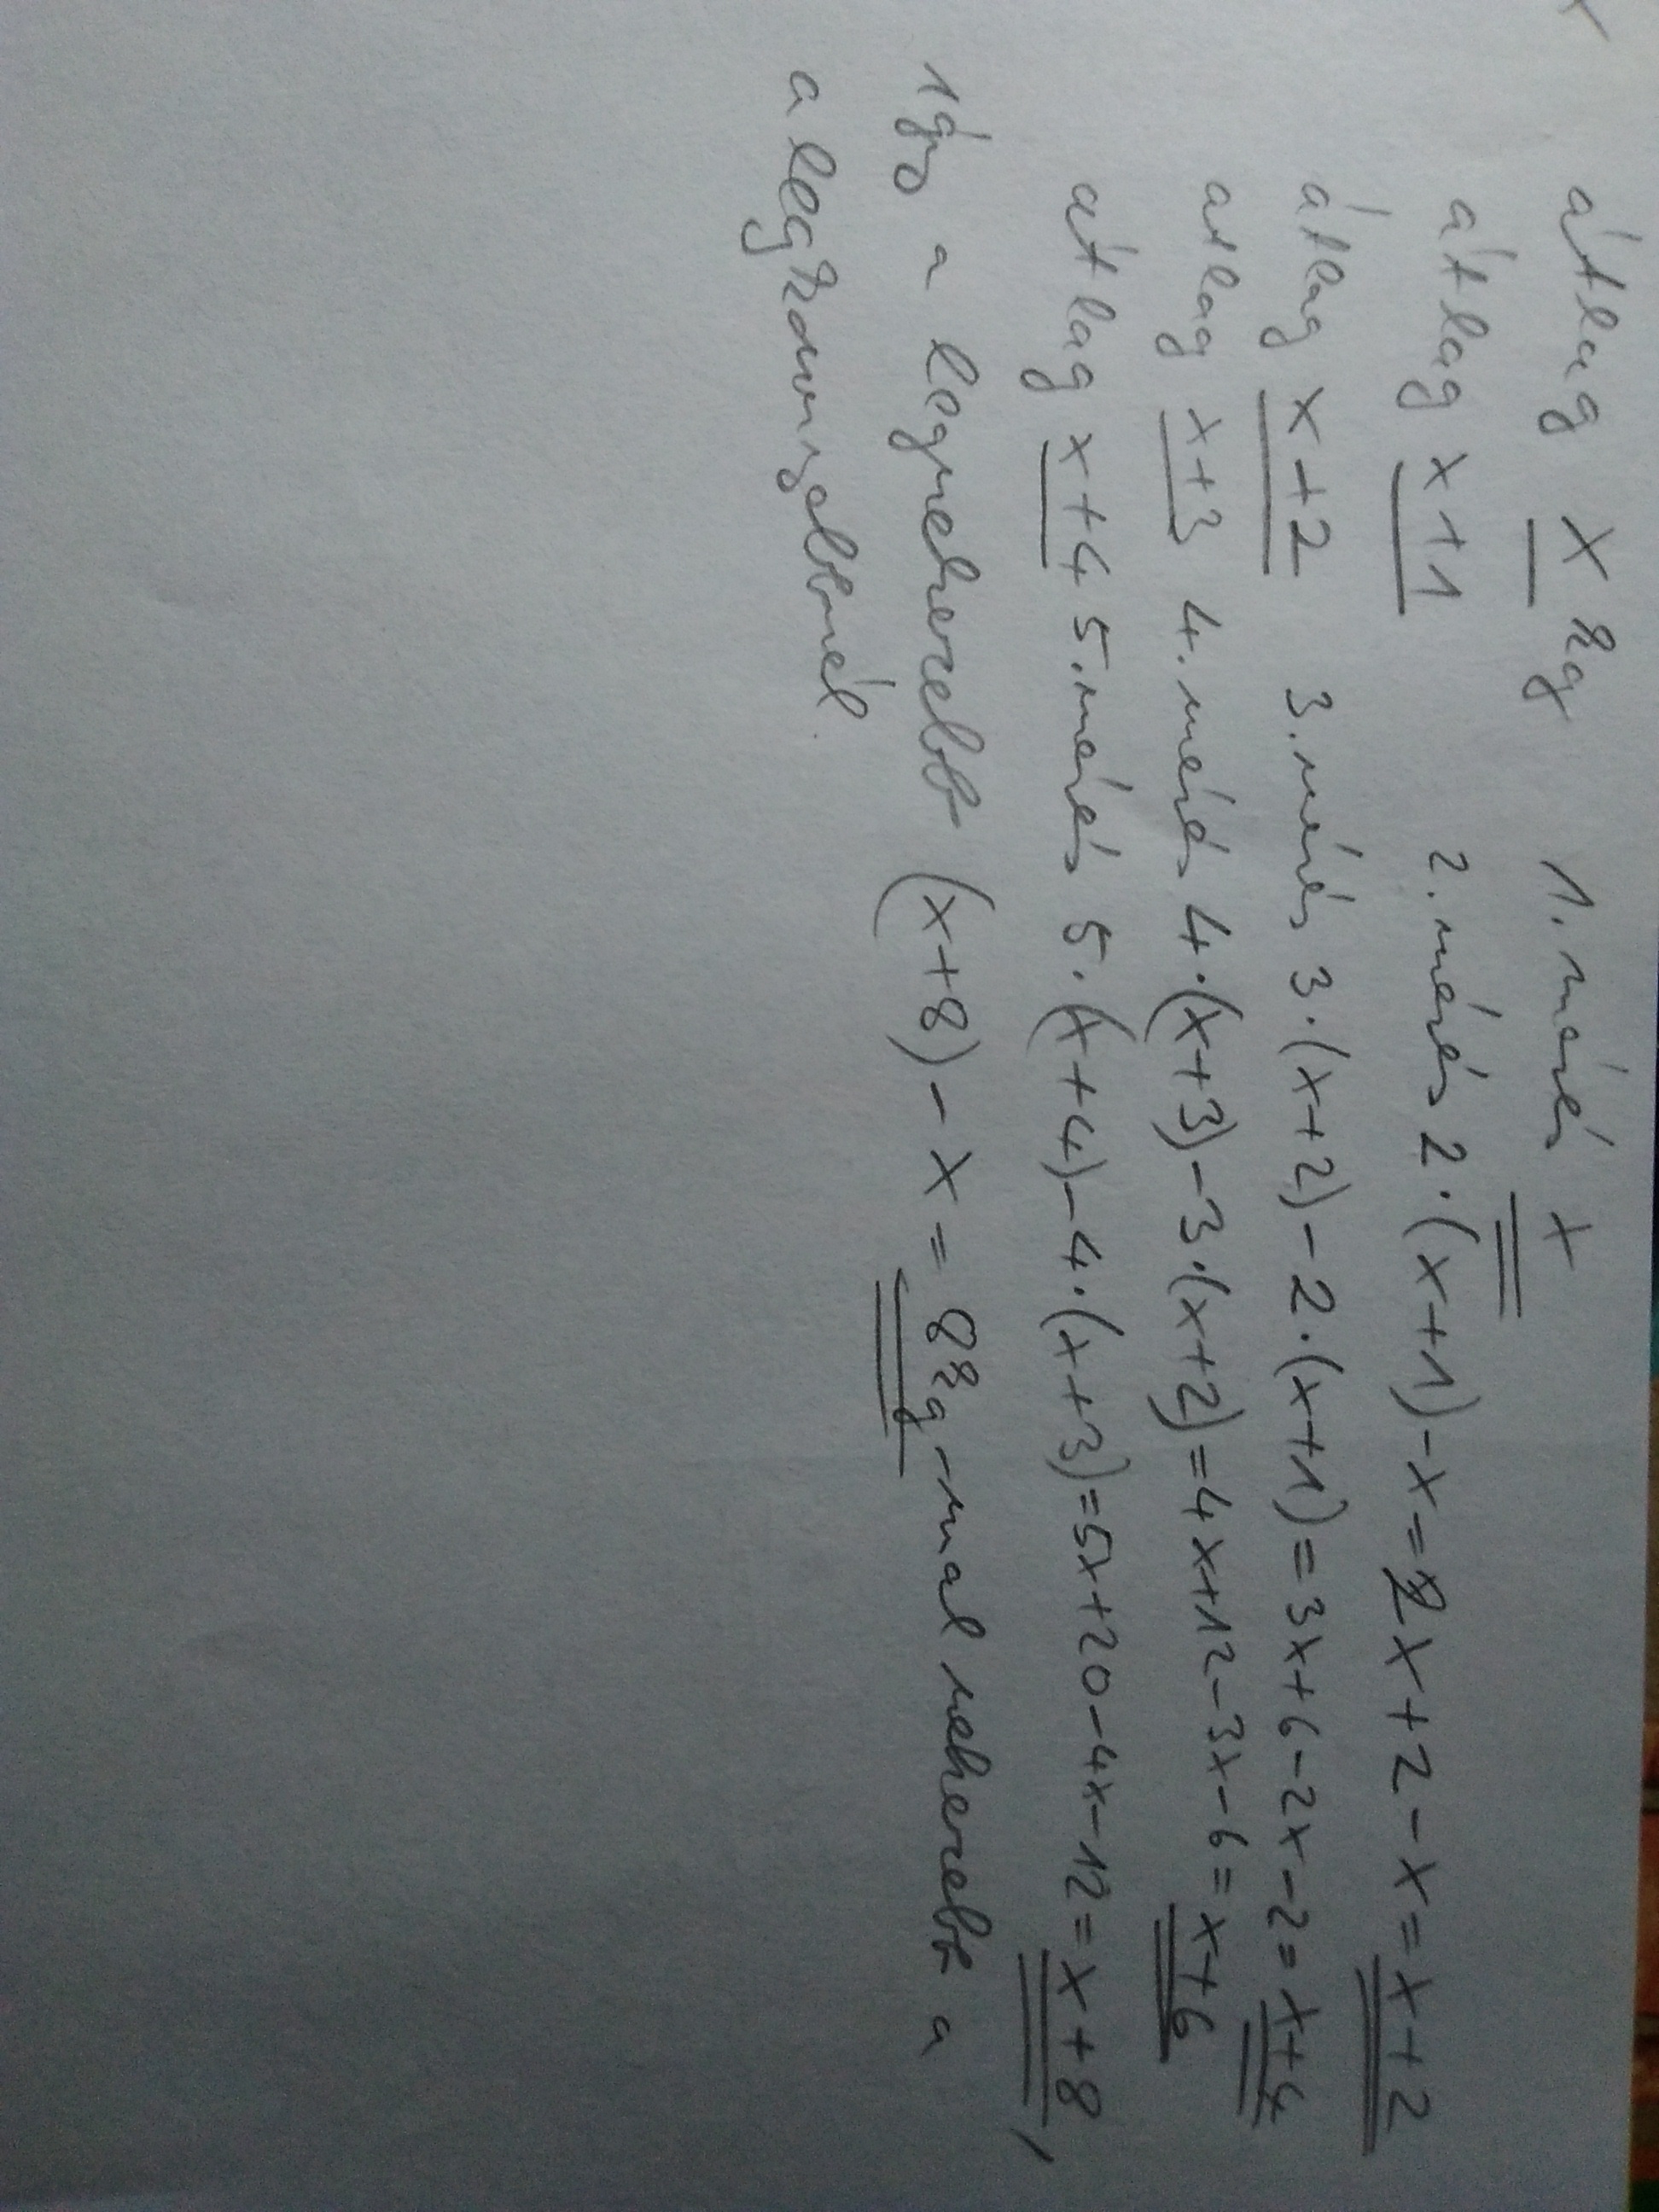 átlag x kg 1. mérés x
átlag x+1 2. mérés 2·(x+1)-x=2x+2-x=x+2
átlag x+2 3. mérés 3·(x+2)-2·(x+1)=3x+6-2x-2=x+4
átlag x+3 4. mérés 4·(x+3)-3·(x+2)=4x+12-3x-6=x+6
átlag x+4 5. mérés 5·(x+4)-4·(x+3)=5x+20-4x-12=x+8,
így a legnehezebb (x+8)-x=8kg-mal nehezebb a
a legkönnyebbnél.